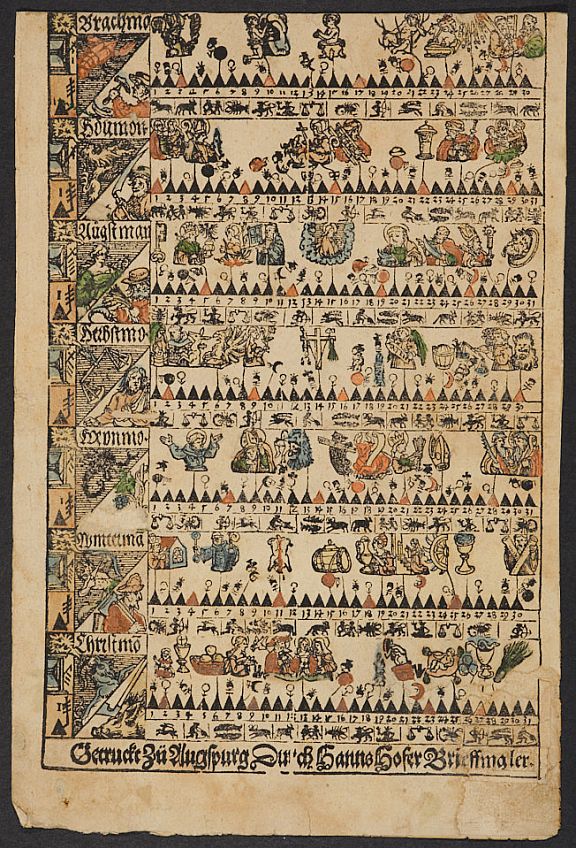 Brachmo
1 2 3 4 5 6 7 8 9 10 11 12 13 14 15 16 17 18 19 20 21 22 23 24 25 26 27 28 29 30
Hoümon
1 2 3 4 5 6 7 8 9 10 11 12 13 14 15 16 17 18 19 20 21 22 23 24 25 26 27 28 29 30 31
Augstman
1 2 3 4 5 6 7 8 9 10 11 12 13 14 15 16 17 18 19 20 21 22 23 24 25 26 27 28 29 30 31
Herbstmo
1 2 3 4 5 6 7 8 9 10 11 12 13 14 15 16 17 18 19 20 21 22 23 24 25 26 27 28 29 30
1 2 3 4 5 6 7 8 9 10 11 12 13 14 15 16 17 18 19 20 21 22 23 24 25 26 27 28 29 30 31
1 2 3 4 5 6 7 8 9 10 11 12 13 14 15 16 17 18 19 20 21 22 23 24 25 26 27 28 29 30
Christmo
1 2 3 4 5 6 7 8 9 10 11 12 13 14 15 16 17 18 19 20 21 22 23 24 25 26 27 28 29 30 31
Getruckt Zü Augspurg Durch Hanns Hofer Brieffmaler.